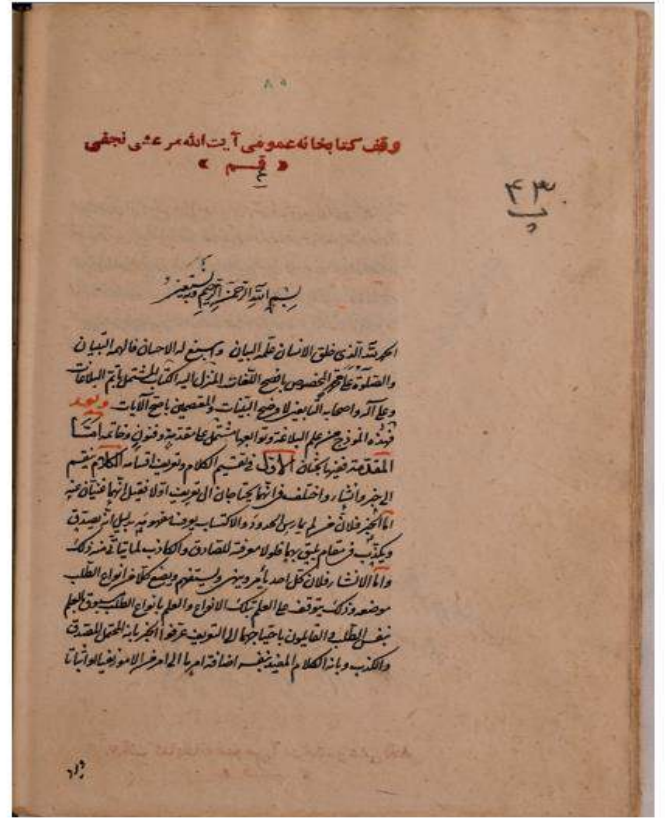 ٨٥
وقف کتابخانه عمومی آیت الله مرعشی نجفی
« قم »
٤٣
بسم الله الرحمن الرحيم وبه نستعين
الحمد لله الذى خلق الانسان علمه البيان واسبغ له الاحسان فالهمه التبيان
والصلوة على محمد المخصوص بافصح اللغات المنزل اليه الكتاب المشتمل باتم البلاغات
وعلى آله واصحابه التابعين لاوضح البينات والمقتصين بافصح الآيات وبعد
فهذه انموذج من علم البلاغة وتوابعها مشتمل على مقدمة وفنون وخاتمة امّا
المقدمة ففيها بحثان الاول فى تقسيم الكلام وتعريف اقسامه الكلام ينقسم
الى خبر وانشاء واختلف فى انهما يحتاجان الى تعريف اولا فقيل انهما غنيان عنه
امّا الخبر فلان من لم يمارس الحدود والاكتساب يعرف مفهومه بدليل انه يصدق
ويكذب فى مقام يليق بهما فلولا معرفته للصادق والكاذب لما يتأتى منه ذلك
وامّا الانشاء فلان كل احد يأمر وينهى ويستفهم ويضع كلا من انواع الطلب
موضعه وذلك يتوقف على العلم بتلك الانواع والعلم بانواع الطلب مسبوق بالعلم
بنفس الطلب والقايلون باحتياجهما الى التعريف عرفوا الخبر بانه المحتمل للصدق
والكذب وبانه الكلام المفيد بنفسه اضافة امر ما الى امر من الامور نفيا او اثباتا